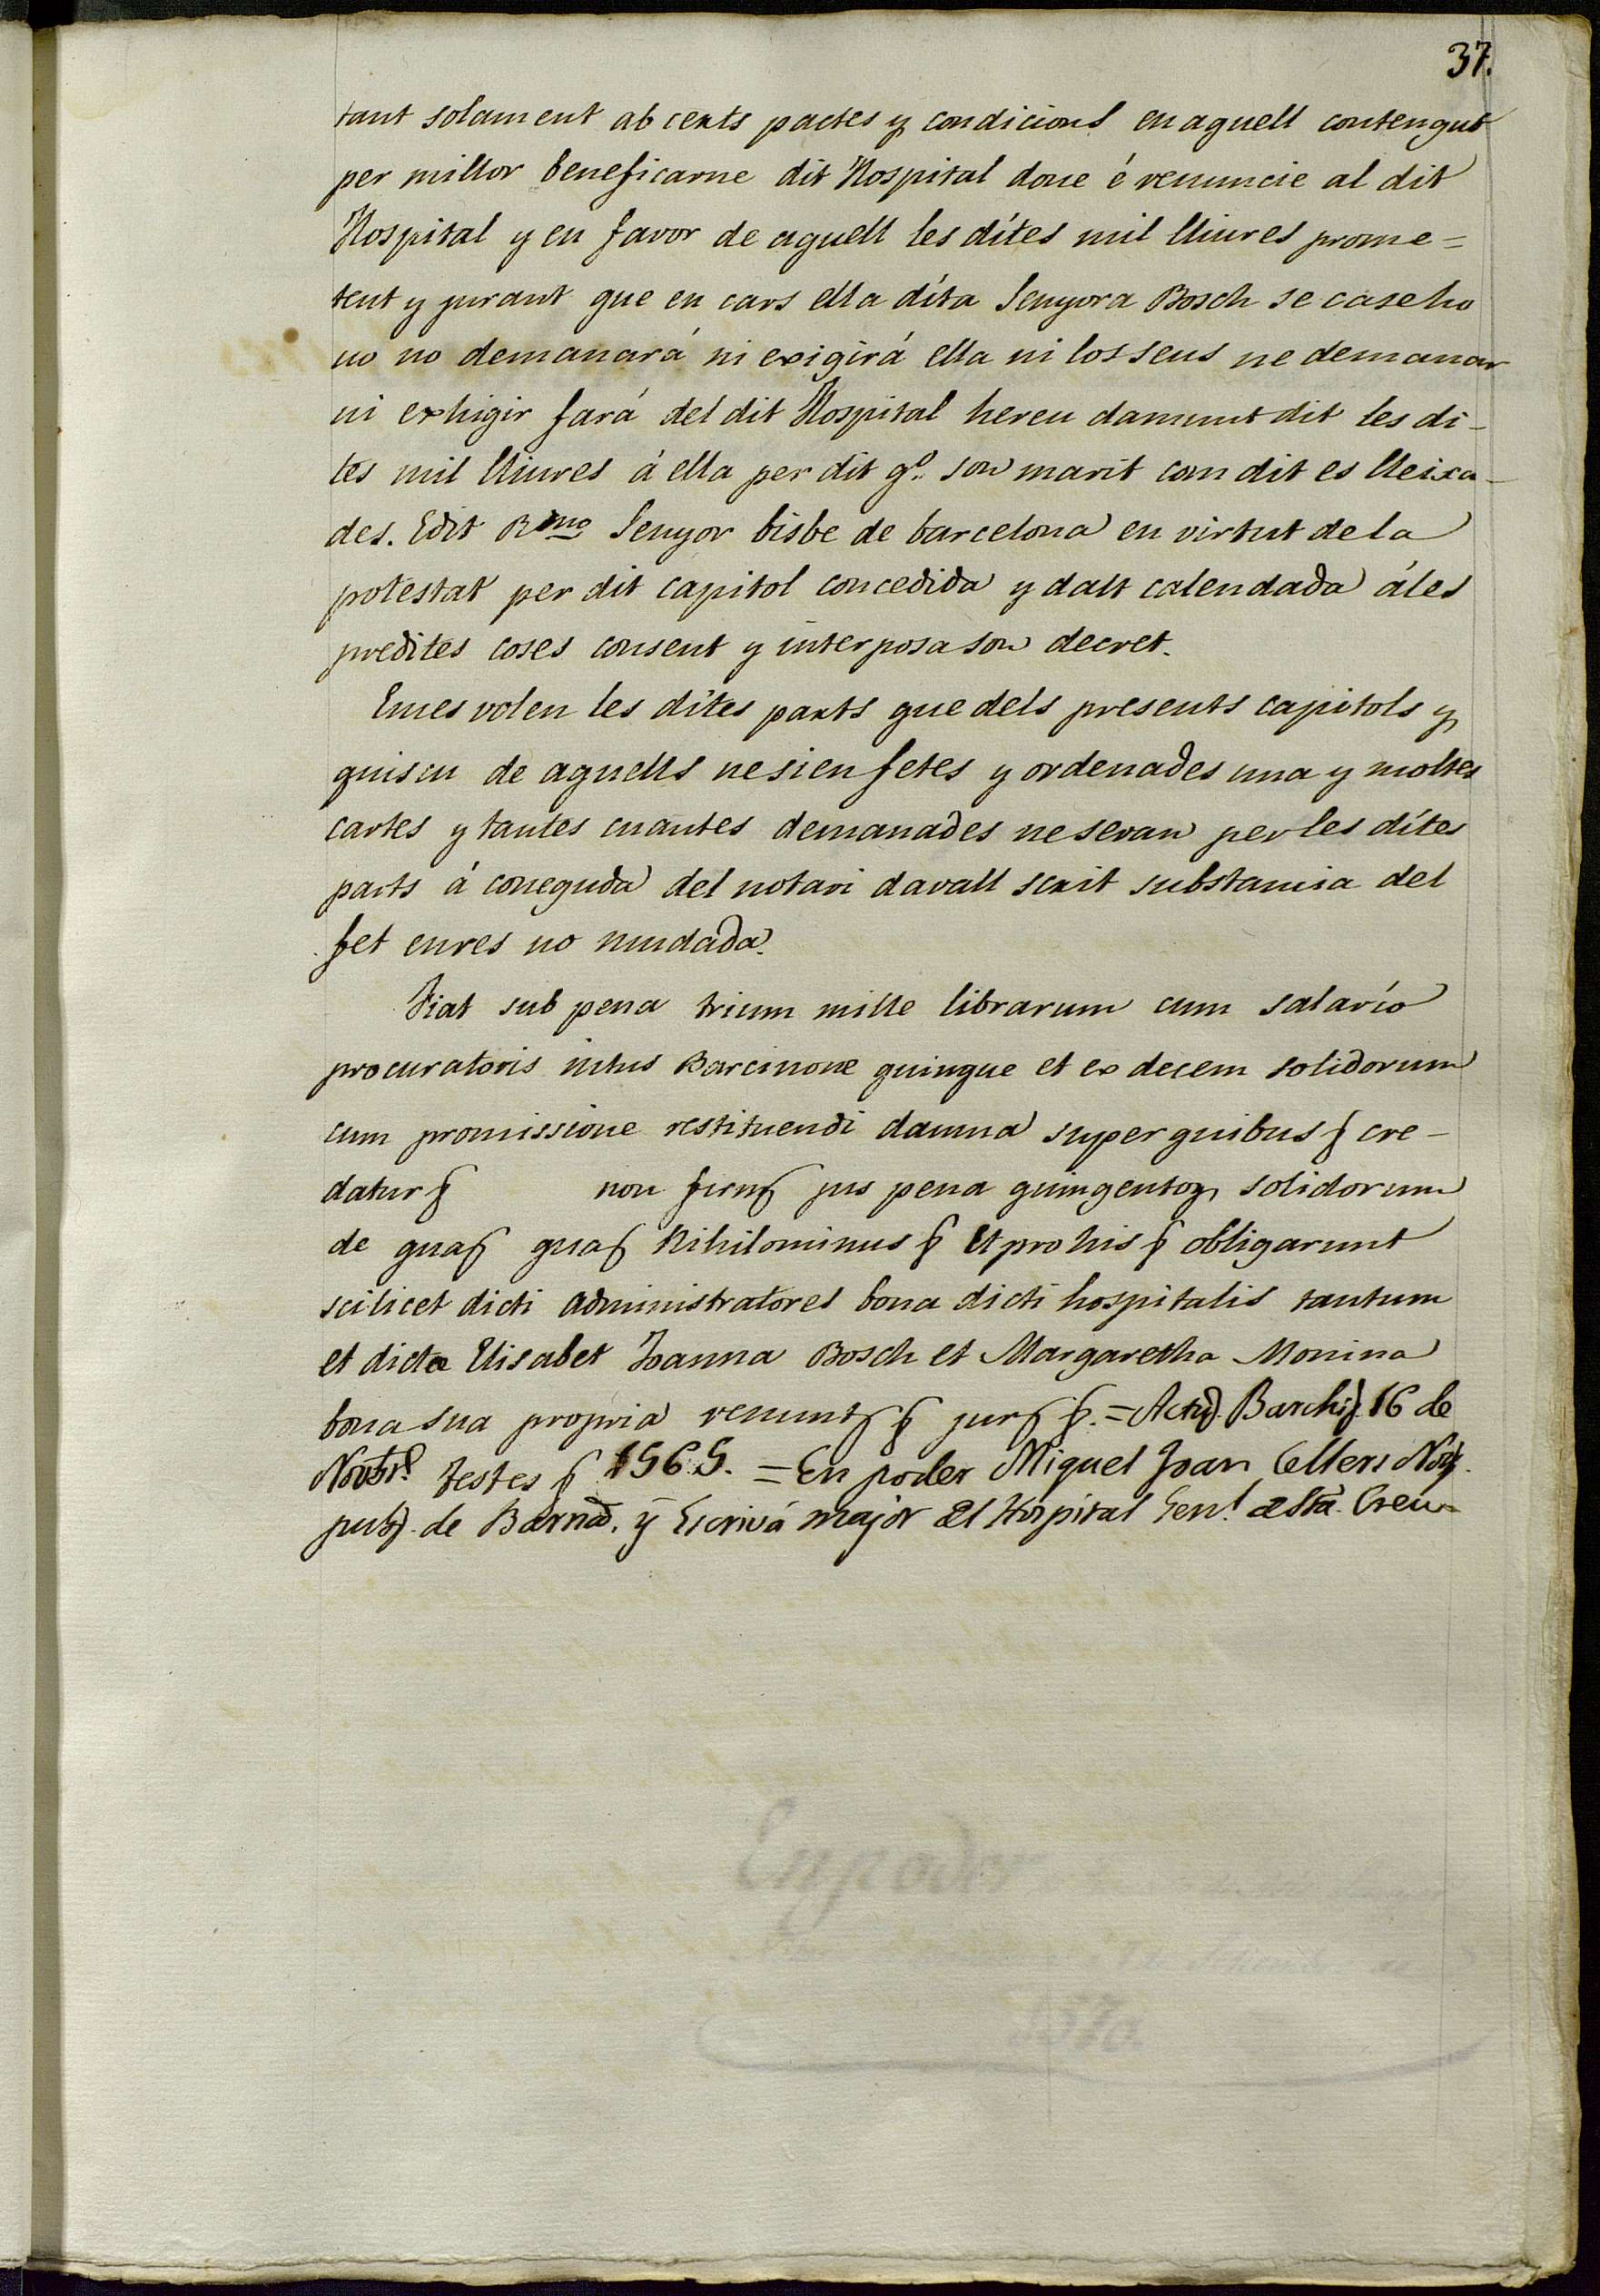 37.
tant solament ab certs pactes y condicions en aquell contengut
per millor beneficarne dit Hospital done é renuncie al dit
Hospital y en favor de aquell les dites mil lliures prome=
tent y jurant que en cars ella dita Senyora Bosch se case ho
no no demanará ni exigirá ella ni los seus ne demanar
ni exhigir fará del dit Hospital hereu damunt dit les di-
tes mil lliures á ella per dit qº. son marit com dit es lleixa-
des. Edit Rmo Senyor bisbe de barcelona en virtut de la
potestat per dit capitol concedida y dalt calendada áles
predites coses consent y interposa son decret.
Emes volen les dites parts que dels presents capitols y
quiscu de aquells ne sien fetes y ordenades una y moltes
cartes y tantes cuantes demanades ne seran per les dites
parts á coneguda del notari davall scrit substancia del
fet en res no mudada.
Fiat sub pena trium mille librarum cum salario
procuratoris intus Barcinone quinque et ex decem solidorum
cum promissione restituendi damna super quibus § cre-
datur § non firmꝭ jus pena quingentoꝝ solidorum
de quaꝭ quaꝭ Nihilominus § Et pro his § obligarunt
scilicet dicti administratores bona dicti hospitalis tantum
et dicta Elisabet Joanna Bosch et Margaretha Monina
bona sua propria renuntꝭ § jurꝭ §. = Actũ. Barchẽ. 16 de
Novbrẽ. Testes § 1565. = En poder Miquel Joan Cellers Notẽ.
pubẽ. de Barnã. ÿ Escrivá major del Hospital Genl. de Sta. Creu
En poder
1570